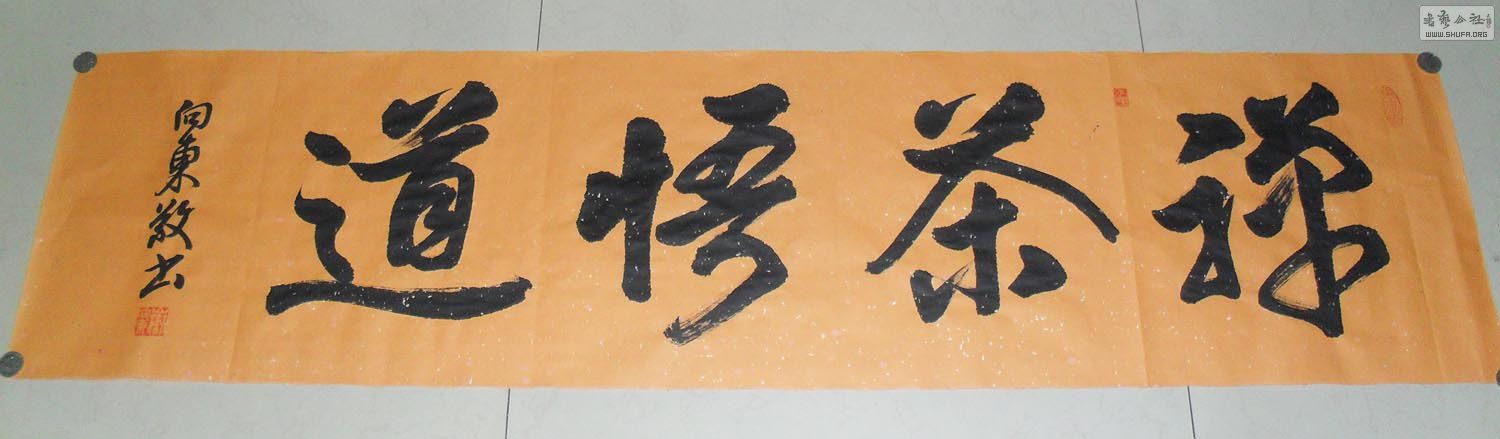 禅茶悟道
向東敬书
书艺公社
WWW.SHUFA.ORG